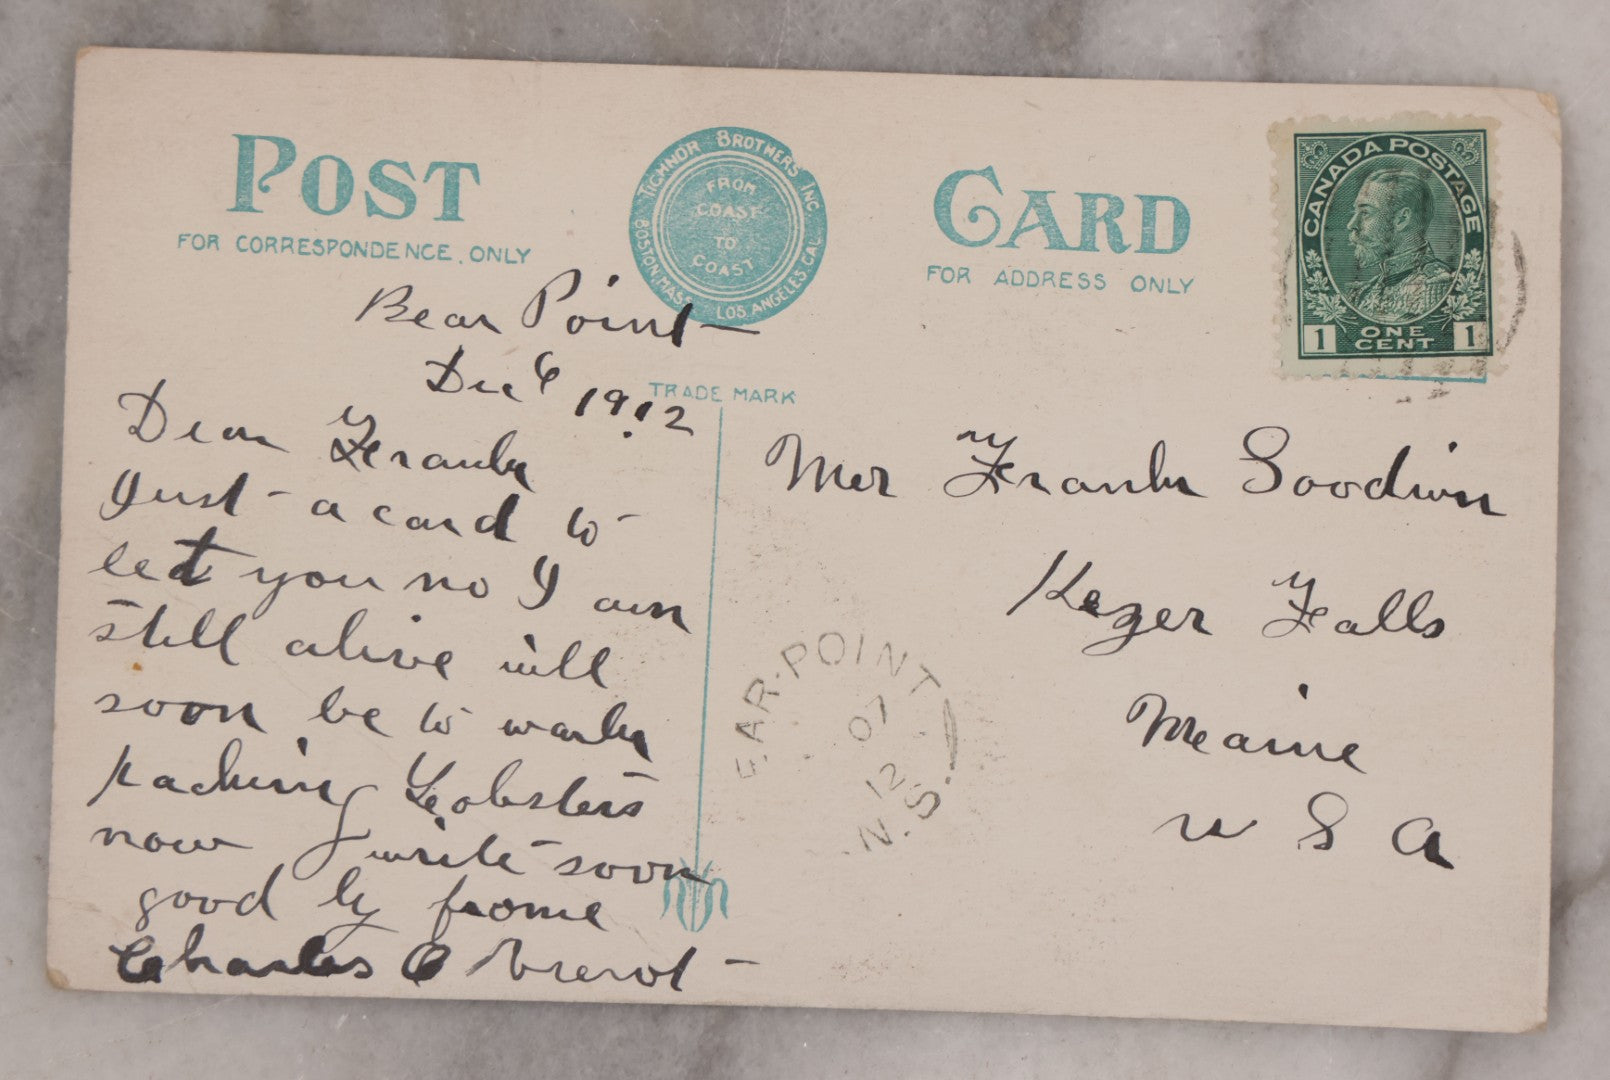 POST
FOR CORRESPONDENCE, ONLY
TICHNOR BROTHERS INC.
BOSTON, MASS. LOS ANGELES CAL.
FROM
COAST
TO
COAST
TRADE MARK
CARD
FOR ADDRESS ONLY
CANADA POSTAGE
1 ONE CENT 1
Bear Point
Dec 6 1912
Dear Frank
Just a card to
let you no I am
still alive will
soon be to work
packing Lobsters
now write soon
good by frome
Charles
Mr Frank Goodwin
Kezer Falls
Meaine
U S A
EAR-POINT
07
12
N.S.